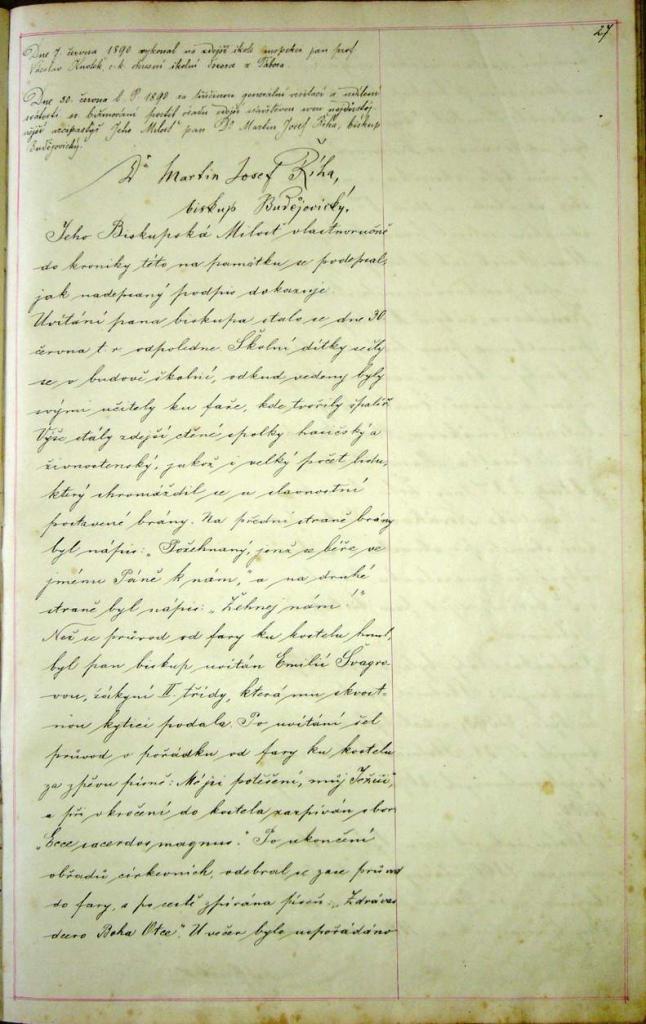 27
Dne 7. června 1890 vykonal na zdejší škole inspekci pan prof.
Václav c. k. okresní školní z Tábora.
Dne 30. června l. P. 1890 za příčinou generální visitací a udílení
svátosti sv. biřmování poctil osadu zdejší návštěvou svou nejdůstoj-
nější arcipastýř Jeho Milosť pan Dr. Martin Josef Říha, biskup
Budějovický.
Dr. Martin Josef Říha,
biskup Budějovický.
Jeho Biskupská Milosť vlastnoručně
do kroniky této na památku se podepsal,
jak nadepsaný podpis dokazuje.
Uvítání pana biskupa stalo se dne 30.
června t. r. odpoledne. Školní dítky sešly
se v budově školní, odkud vedeny byly
svými učiteli ku faře, kde tvořily špalír.
Výše stály zdejší ctěné spolky hasičský a
živnostenský, jakož i velký počet lidu,
který shromáždil se u slavnostní
postavené brány. Na přední straně brány
byl nápis: „Požehnaný, jenž se béře ve
jménu Páně k nám," a na druhé
straně byl nápis: „Žehnej nám!"
Než se průvod od fary ku kostelu hnul,
byl pan biskup uvítán Emilií Švagro-
vou, žákyní II. třídy, která mu skvost-
nou kytici podala. Po uvítání šel
průvod v pořádku od fary ku kostelu
za zpěvu písně: Mé jsi potěšení, můj Ježíši,
a při vkročení do kostela zazpíván sbor
„Ecce sacerdos magnus." Po ukončení
obřadů církevních, odebral se zase průvod
do fary, a po cestě zpívána píseň: „Zdráva
dcero Boha Otce". U večer bylo uspořádáno